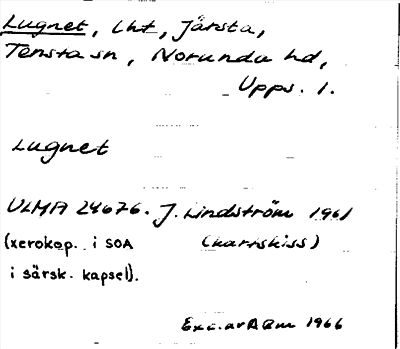 Lugnet, lht, Järsta,
Tensta sn, Norunda hd,
Upps. l.
Lugnet
ULMA 24676. J. Lindström 1961
(xerokop. i SOA (kartskiss)
i särsk. kapsel).
Exc. av ABm 1966